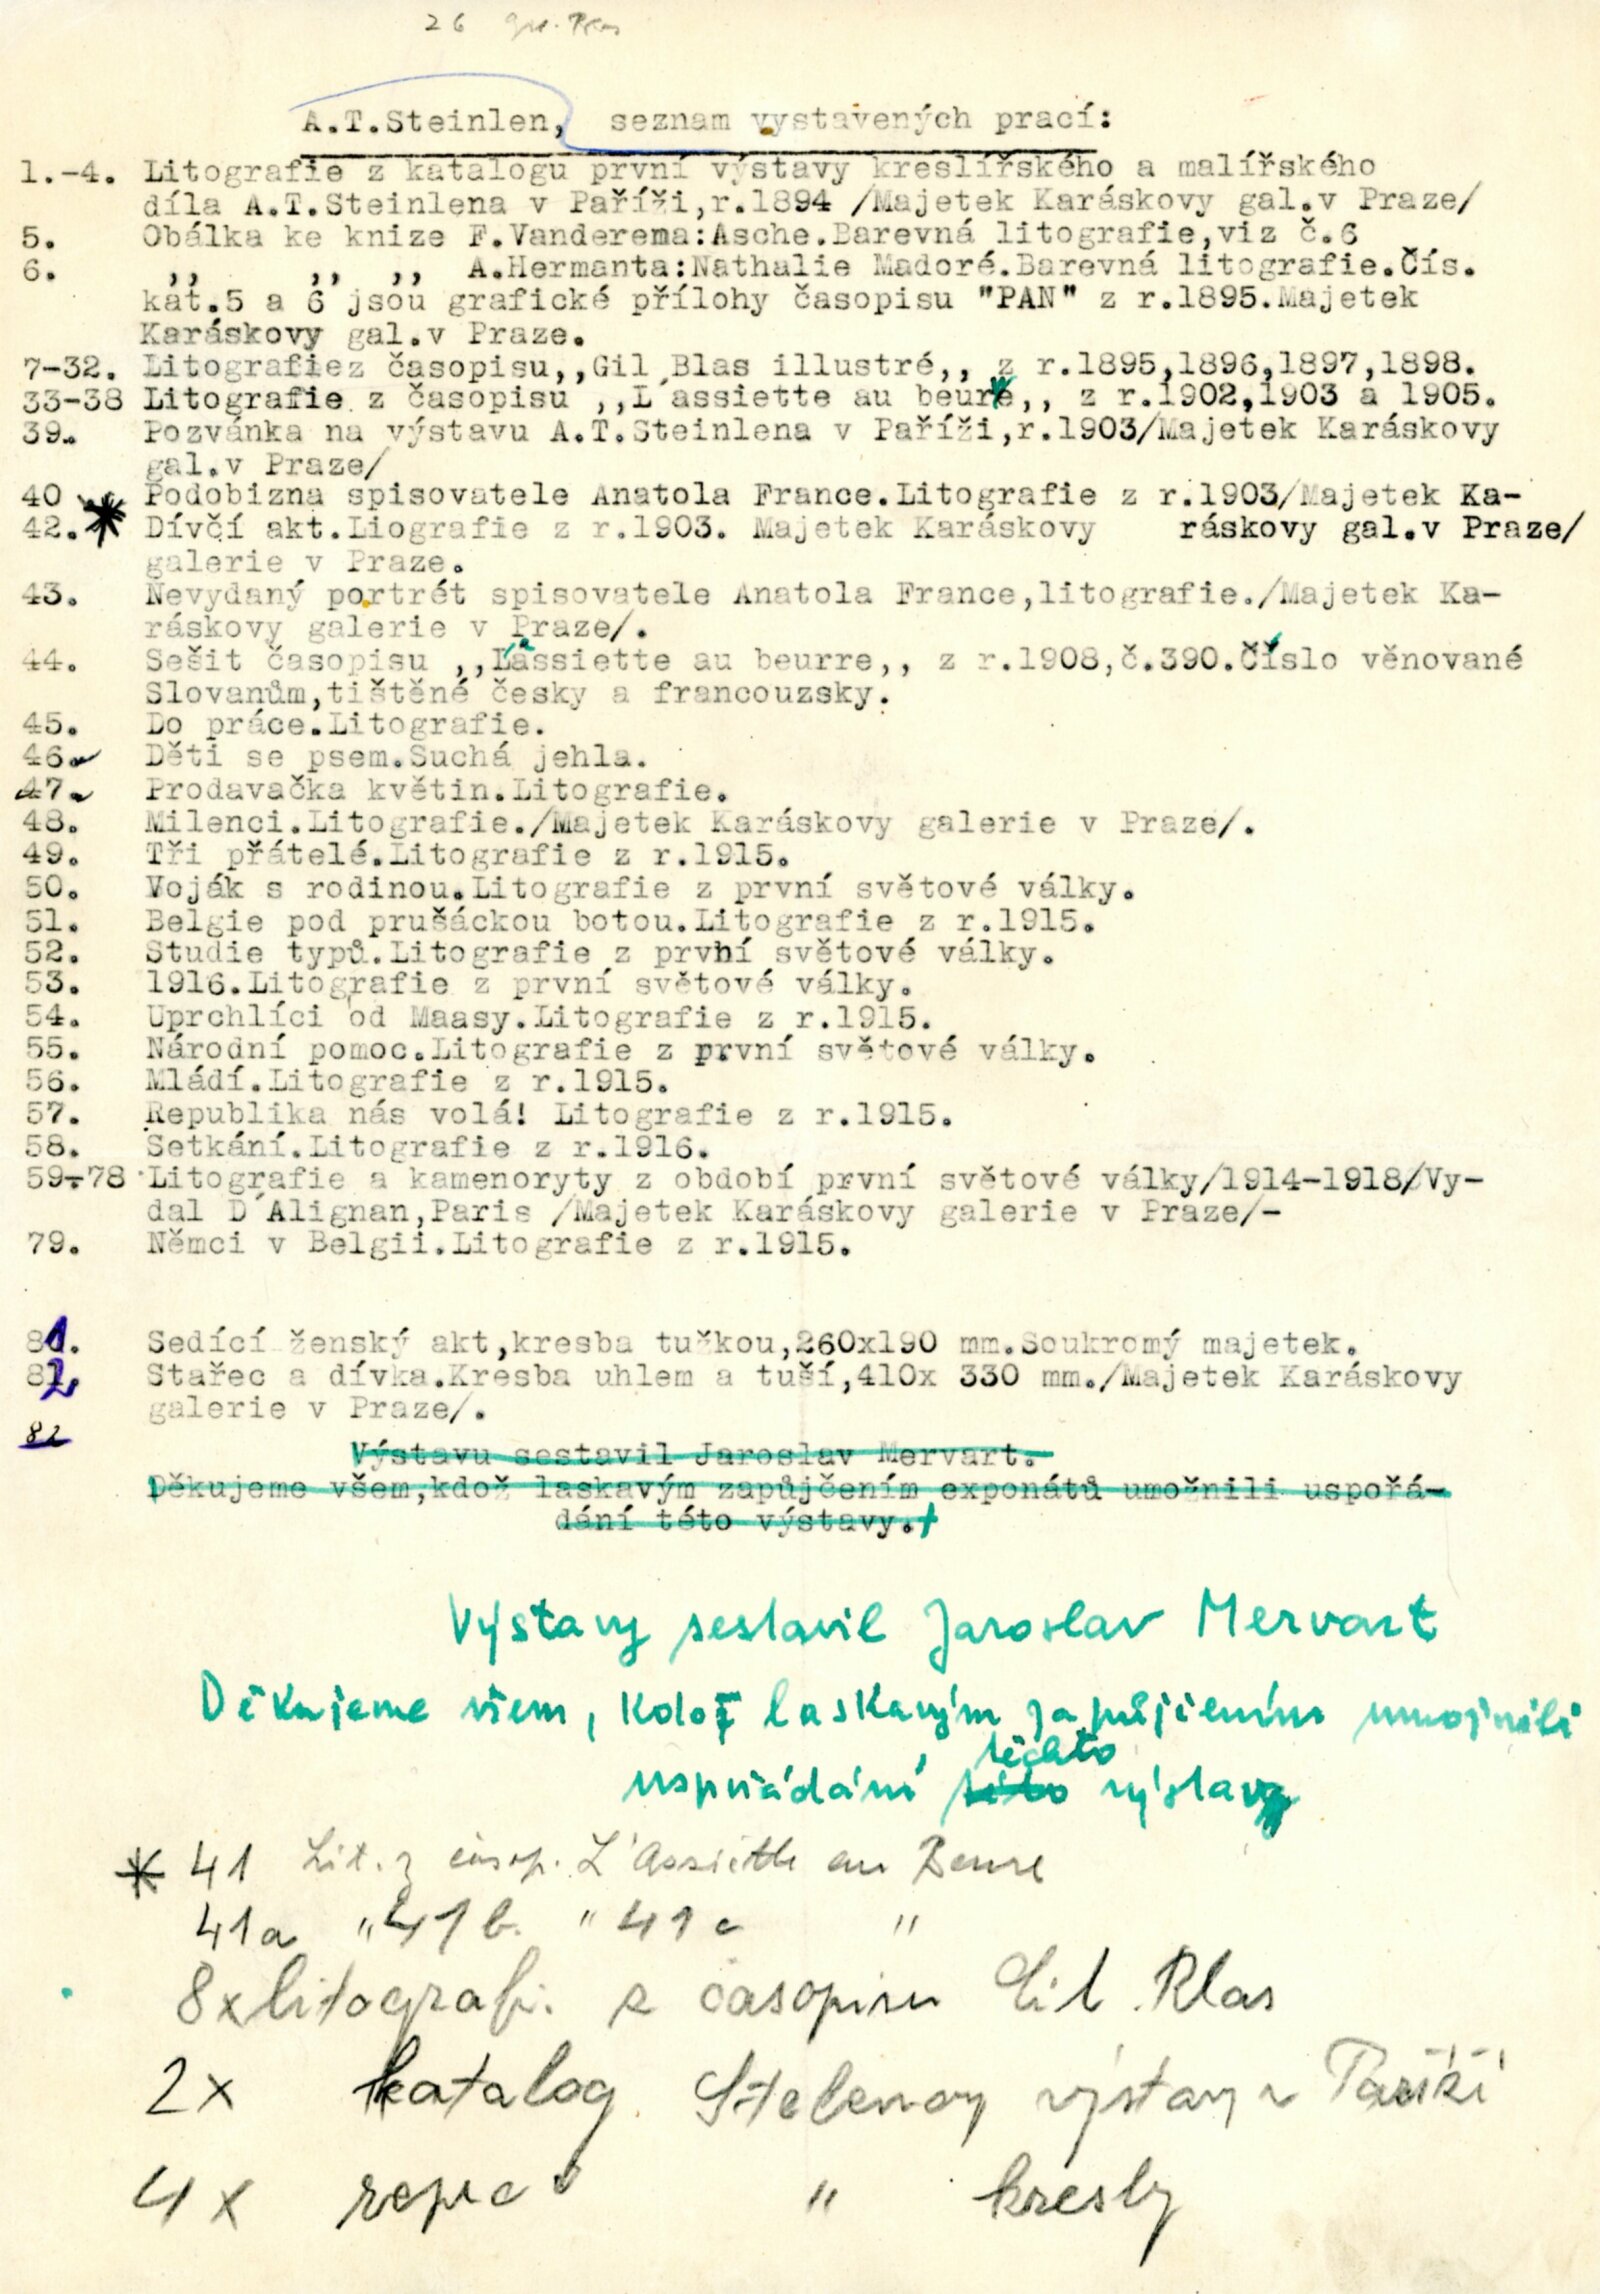 26
A.T.Steinlen, seznam vystavených prací:
1.-4. Litografie z katalogu první výstavy kreslířského a malířského
díla A.T.Steinlena v Paříži,r.1894 /Majetek Karáskovy gal.v Praze/
5. Obálka ke knize F.Vanderema:Asche.Barevná litografie,viz č.6
6. ,, ,, ,, A.Hermanta:Nathalie Madoré.Barevná litografie.Čís.
kat.5 a 6 jsou grafické přílohy časopisu "PAN" z r.1895.Majetek
Karáskovy gal.v Praze.
7-32. Litografiez časopisu,,Gil Blas illustré,, z r.1895,1896,1897,1898.
33-38 Litografie z časopisu ,,L´assiette au beure,, z r.1902,1903 a 1905.
39. Pozvánka na výstavu A.T.Steinlena v Paříži,r.1903/Majetek Karáskovy
gal.v Praze/
40 Podobizna spisovatele Anatola France.Litografie z r.1903/Majetek Ka-
42. Dívčí akt.Liografie z r.1903. Majetek Karáskovy ráskovy gal.v Praze/
galerie v Praze.
43. Nevydaný portrét spisovatele Anatola France,litografie./Majetek Ka-
ráskovy galerie v Praze/.
44. Sešit časopisu ,,L´assiette au beurre,, z r.1908,č.390.Číslo věnované
Slovanům,tištěné česky a francouzsky.
45. Do práce.Litografie.
46. Děti se psem.Suchá jehla.
47. Prodavačka květin.Litografie.
48. Milenci.Litografie./Majetek Karáskovy galerie v Praze/.
49. Tři přátelé.Litografie z r.1915.
50. Voják s rodinou.Litografie z první světové války.
51. Belgie pod prušáckou botou.Litografie z r.1915.
52. Studie typů.Litografie z první světové války.
53. 1916.Litografie z první světové války.
54. Uprchlíci od Maasy.Litografie z r.1915.
55. Národní pomoc.Litografie z první světové války.
56. Mládí.Litografie z r.1915.
57. Republika nás volá! Litografie z r.1915.
58. Setkání.Litografie z r.1916.
59-78 Litografie a kamenoryty z období první světové války/1914-1918/Vy-
dal D´Alignan,Paris /Majetek Karáskovy galerie v Praze/-
79. Němci v Belgii.Litografie z r.1915.
81. Sedící ženský akt,kresba tužkou,260x190 mm.Soukromý majetek.
82 Stařec a dívka.Kresba uhlem a tuší,410x 330 mm./Majetek Karáskovy
galerie v Praze/.
82
Výstavu sestavil Jaroslav Mervart.
Děkujeme všem,kdož laskavým zapůjčením exponátů umožnili uspořá-
dání této výstavy.
Výstavy sestavil Jaroslav Mervart
Děkujeme všem, kdož laskavým zapůjčením umožnili
těchto
uspořádání této výstavy
* 41 Lit. z časop. L'Assiette au Beure
41a " 41b. " 41c "
8x litografi. z časopisu Gil Blas
2x katalog Stelenovy výstavy v Paříži
4x " kresby